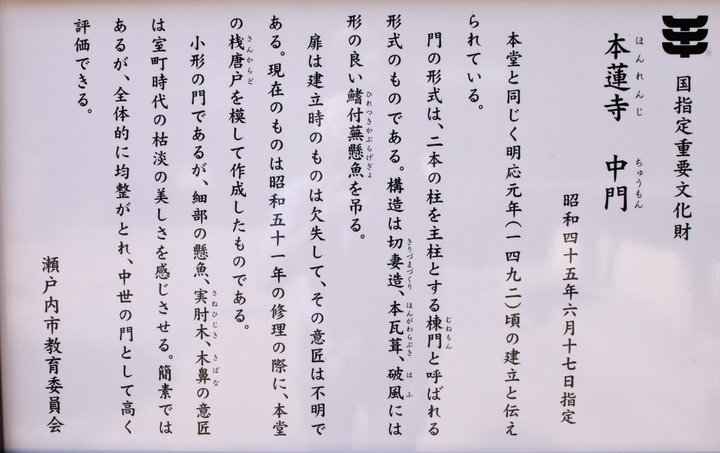 国指定重要文化財
本蓮寺　中門
ほんれんじ　ちゅうもん
昭和四十五年六月十七日指定
本堂と同じく明応元年（一四九二）頃の建立と伝え
られている。
門の形式は、二本の柱を主柱とする棟門と呼ばれる
むねもん
形式のものである。構造は切妻造、本瓦葺、破風には
きりづまづくり　ほんがわらぶき　はふ
形の良い鰭付蕪懸魚を吊る。
ひれつきかぶらげぎょ
扉は建立時のものは欠失して、その意匠は不明で
ある。現在のものは昭和五十一年の修理の際に、本堂
の桟唐戸を模して作成したものである。
さんからど
小形の門であるが、細部の懸魚、実肘木、木鼻の意匠
さねひじき　きばな
は室町時代の枯淡の美しさを感じさせる。簡素では
あるが、全体的に均整がとれ、中世の門として高く
評価できる。
瀬戸内市教育委員会